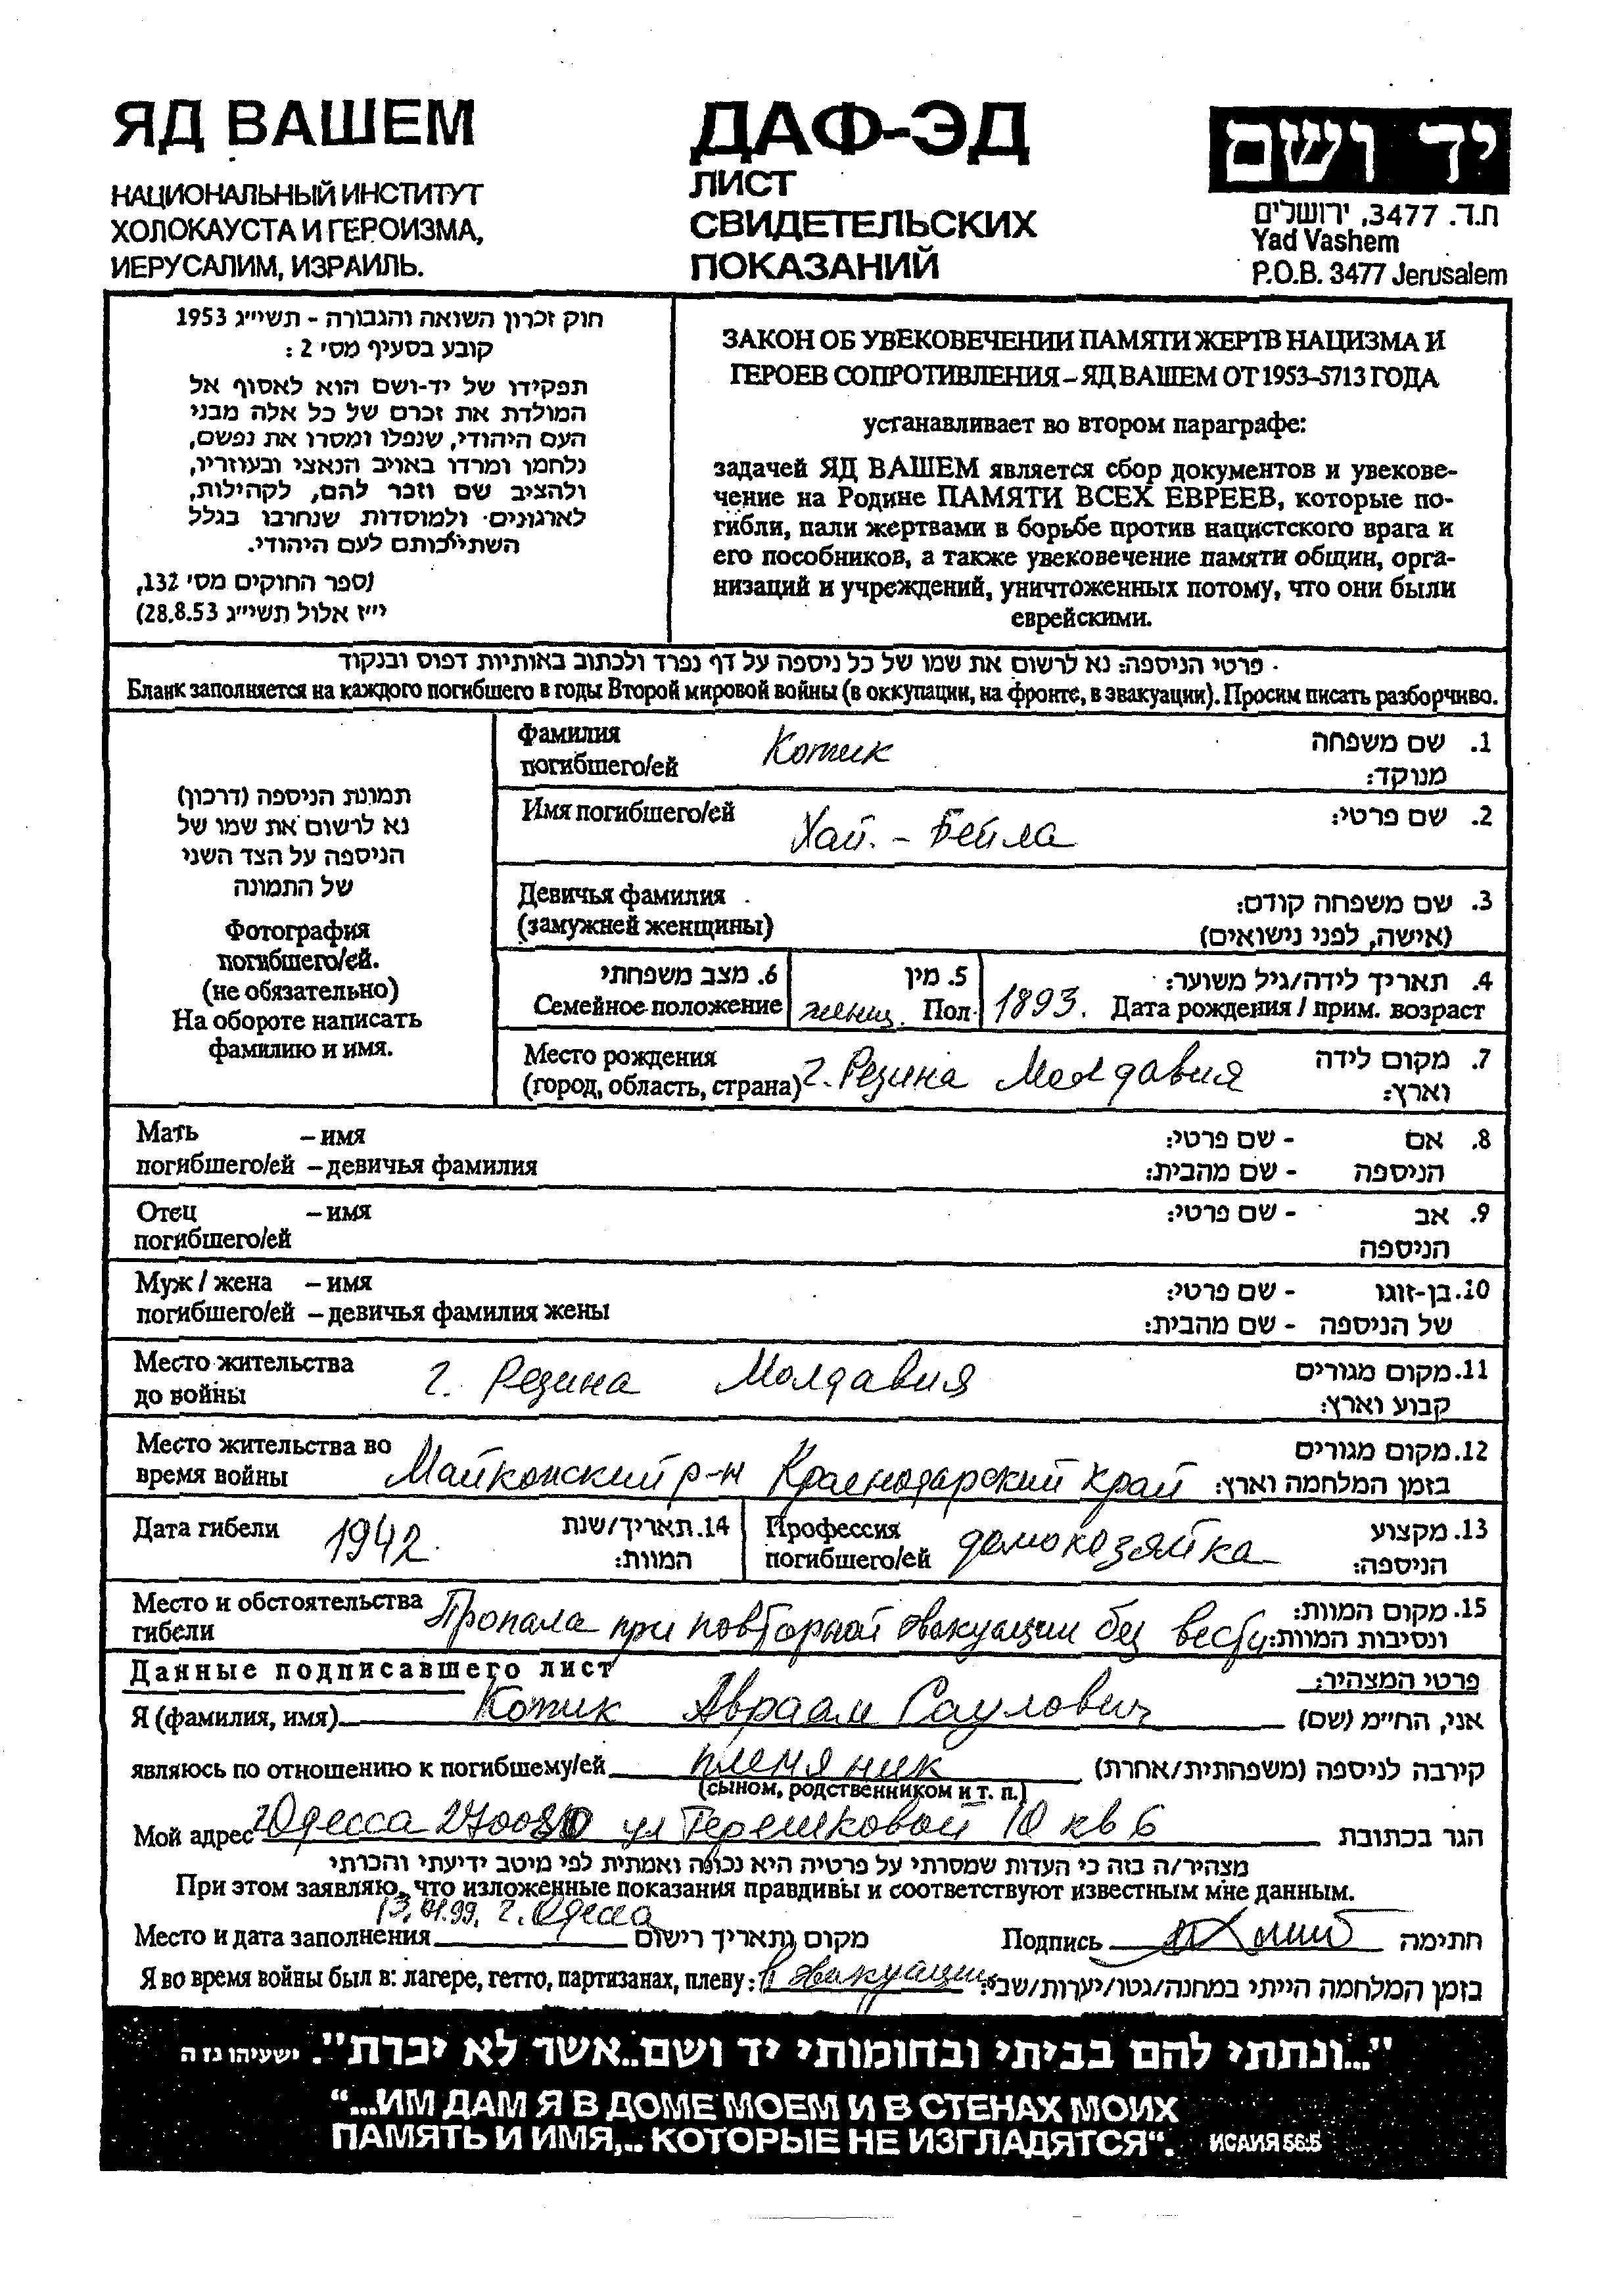 ЯД ВАШЕМ
НАЦИОНАЛЬНЫЙ ИНСТИТУТ
ХОЛОКАУСТА И ГЕРОИЗМА,
ИЕРУСАЛИМ, ИЗРАИЛЬ.
ДАФ-ЭД
ЛИСТ
СВИДЕТЕЛЬСКИХ
ПОКАЗАНИЙ
יד ושם
ת.ד. 3477, ירושלים
Yad Vashem
P.O.B. 3477 Jerusalem
חוק זכרון השואה והגבורה - תשי״ג 1953
קובע בסעיף מס׳ 2 :
תפקידו של יד-ושם הוא לאסוף אל
המולדת את זכרם של כל אלה מבני
העם היהודי, שנפלו ומסרו את נפשם,
נלחמו ומרדו באויב הנאצי ובעוזריו,
ולהציב שם וזכר להם, לקהילות,
לארגונים ולמוסדות שנחרבו בגלל
השתייכותם לעם היהודי.
(ספר החוקים מס׳ 132,
י״ז אלול תשי״ג 28.8.53)
ЗАКОН ОБ УВЕКОВЕЧЕНИИ ПАМЯТИ ЖЕРТВ НАЦИЗМА И
ГЕРОЕВ СОПРОТИВЛЕНИЯ – ЯД ВАШЕМ ОТ 1953–5713 ГОДА
устанавливает во втором параграфе:
задачей ЯД ВАШЕМ является сбор документов и увекове-
чение на Родине ПАМЯТИ ВСЕХ ЕВРЕЕВ, которые по-
гибли, пали жертвами в борьбе против нацистского врага и
его пособников, а также увековечение памяти общин, орга-
низаций и учреждений, уничтоженных потому, что они были
еврейскими.
פרטי הניספה: נא לרשום את שמו של כל ניספה על דף נפרד ולכתוב באותיות דפוס ובנקוד
Бланк заполняется на каждого погибшего в годы Второй мировой войны (в оккупации, на фронте, в эвакуации). Просим писать разборчиво.
תמונת הניספה (דרכון)
נא לרשום את שמו של
הניספה על הצד השני
של התמונה
Фотография
погибшего/ей.
(не обязательно)
На обороте написать
фамилию и имя.
Фамилия Котик 1. שם משפחה
погибшего/ей מנוקד:
Имя погибшего/ей Хай. - Бейла 2. שם פרטי:
Девичья фамилия 3. שם משפחה קודם:
(замужней женщины) (אישה, לפני נישואים)
6. מצב משפחתי 5. מין 4. תאריך לידה/גיל משוער:
Семейное положение женщ. Пол 1893. Дата рождения / прим. возраст
Место рождения 7. מקום לידה
(город, область, страна) г. Резина Молдавия וארץ:
Мать – имя 8. אם - שם פרטי:
погибшего/ей – девичья фамилия הניספה - שם מהבית:
Отец – имя 9. אב - שם פרטי:
погибшего/ей הניספה
Муж / жена – имя 10. בן-זוגו - שם פרטי:
погибшего/ей – девичья фамилия жены של הניספה - שם מהבית:
Место жительства г. Резина Молдавия 11. מקום מגורים
до войны קבוע וארץ:
Место жительства во 12. מקום מגורים
время войны Майкопский р-н Краснодарский край בזמן המלחמה וארץ:
Дата гибели 1942. 14. תאריך/שנת המוות:
Профессия погибшего/ей домохозяйка 13. מקצוע הניספה:
Место и обстоятельства 15. מקום המוות:
гибели Пропала при повторной эвакуации без вести ונסיבות המוות:
Данные подписавшего лист פרטי המצהיר:
Я (фамилия, имя) Котик Авраам Саулович אני, הח״מ (שם)
являюсь по отношению к погибшему/ей племяник קירבה לניספה (משפחתית/אחרת)
(сыном, родственником и т. п.)
Мой адрес г Одесса ул Терешковой 10 кв 6 הגר בכתובת
מצהיר/ה בזה כי העדות שמסרתי על פרטיה היא נכונה ואמתית לפי מיטב ידיעתי והכרתי
При этом заявляю, что изложенные показания правдивы и соответствуют известным мне данным.
Место и дата заполнения 13.01.99. г. Одесса מקום ותאריך רישום Подпись חתימה
Я во время войны был в: лагере, гетто, партизанах, плену: в эвакуации בזמן המלחמה הייתי במחנה/גטו/יערות/שבי:
"...ונתתי להם בביתי ובחומותי יד ושם..אשר לא יכרת". ישעיהו נז ה
"...ИМ ДАМ Я В ДОМЕ МОЕМ И В СТЕНАХ МОИХ
ПАМЯТЬ И ИМЯ,.. КОТОРЫЕ НЕ ИЗГЛАДЯТСЯ". ИСАИЯ 56:5